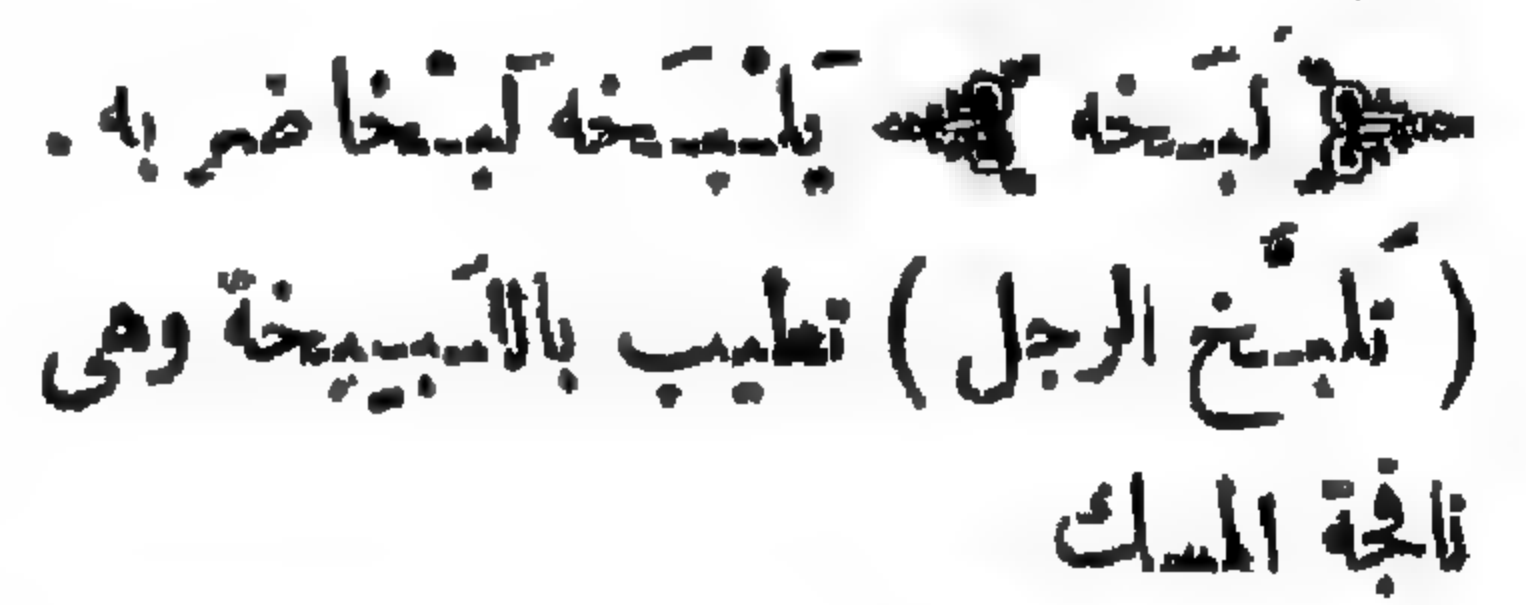 ﴿ لَبَخه ﴾ يَلْبَخه لَبْخا ضر به .
( تَلبَّخ الرجل ) تطيب باللَبيخة وهى
نافجة المسك